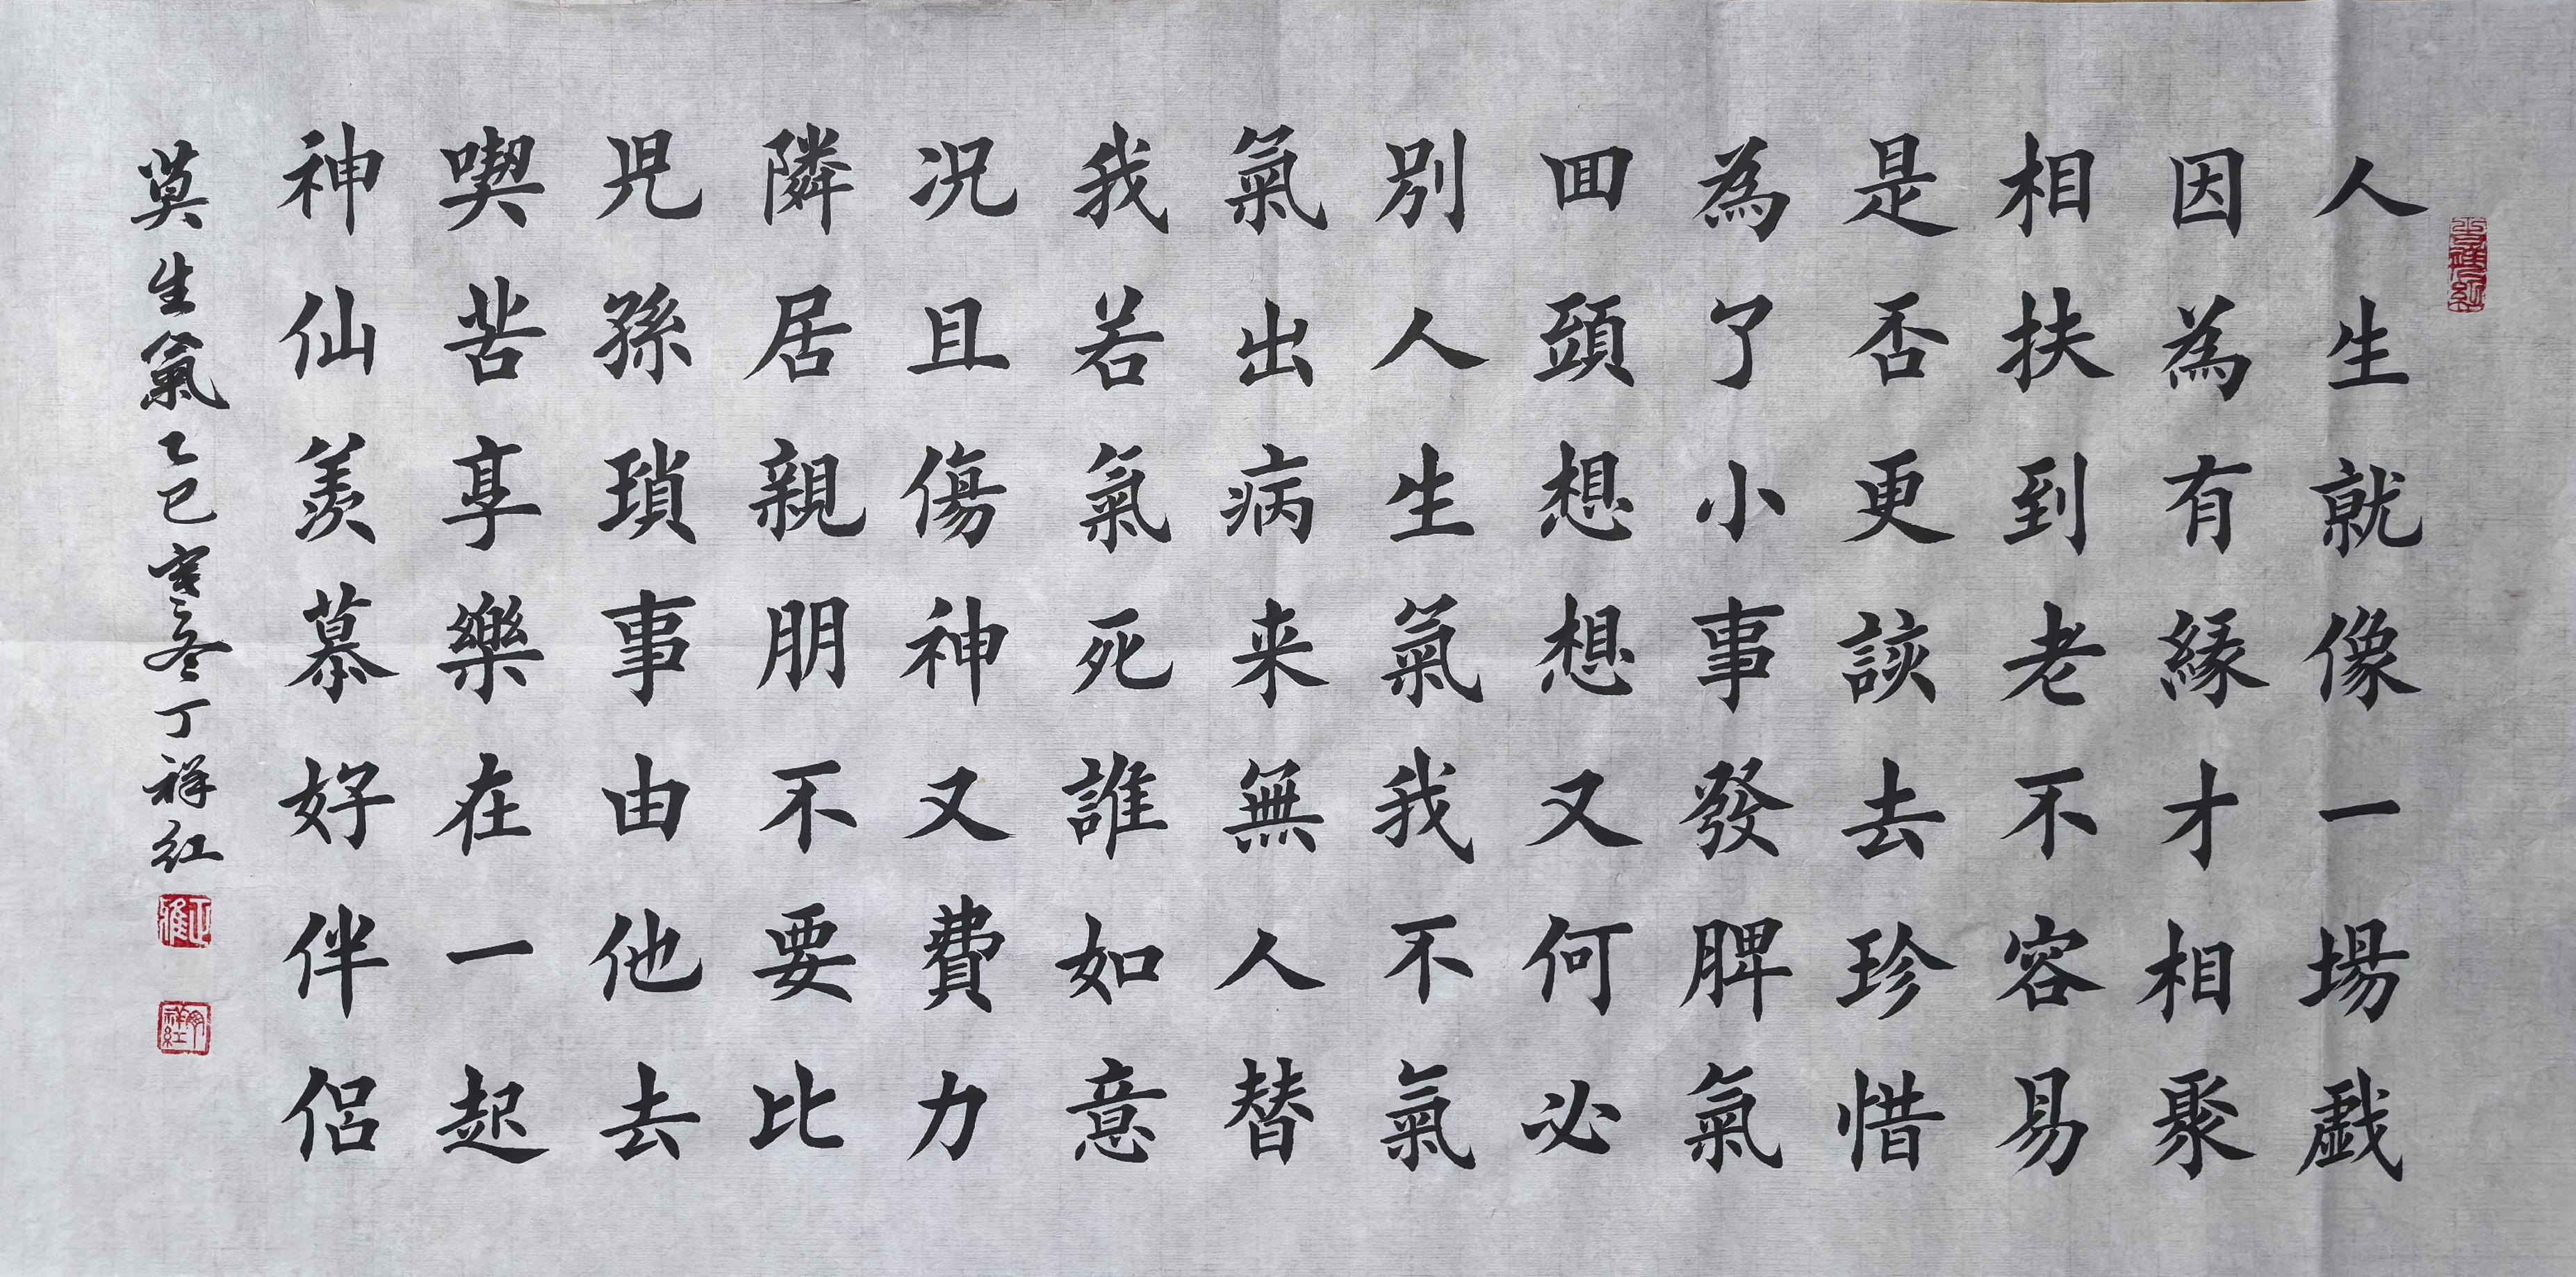 人生就像一場戱
因為有緣才相聚
相扶到老不容易
是否更該去珍惜
為了小事發脾氣
回頭想想又何必
別人生氣我不氣
氣出病来無人替
我若氣死誰如意
况且傷神又費力
隣居親朋不要比
児孫瑣事由他去
喫苦享樂在一起
神仙羨慕好伴侶
莫生氣乙巳寒冬丁祥红